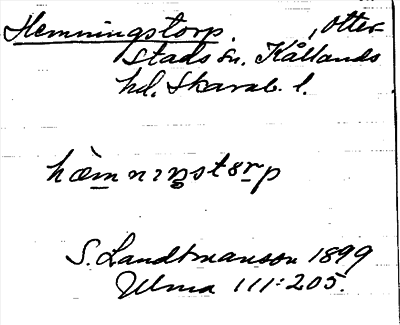 Hemningstorp. , Otter-
stads sn. Kållands
hd. Skarab. l.
hæmnıŋstørp
S. Landtmanson 1899
Ulma 111:205.